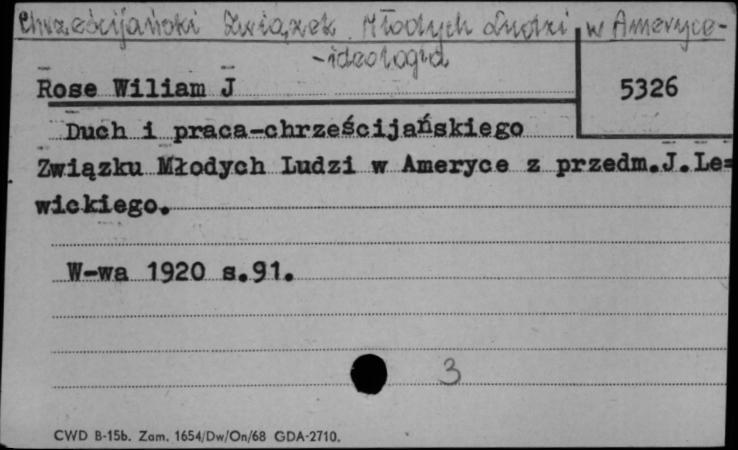 Chrześcijański Związek Młodych Ludzi w Ameryce-
-ideologia
Rose Wiliam J
5326
Duch i praca-chrześcijańskiego
Związku Młodych Ludzi w Ameryce z przedm.J.Le=
wickiego.
W-wa 1920 s.91.
3
CWD B-15b. Zam. 1654/Dw/On/68 GDA-2710.